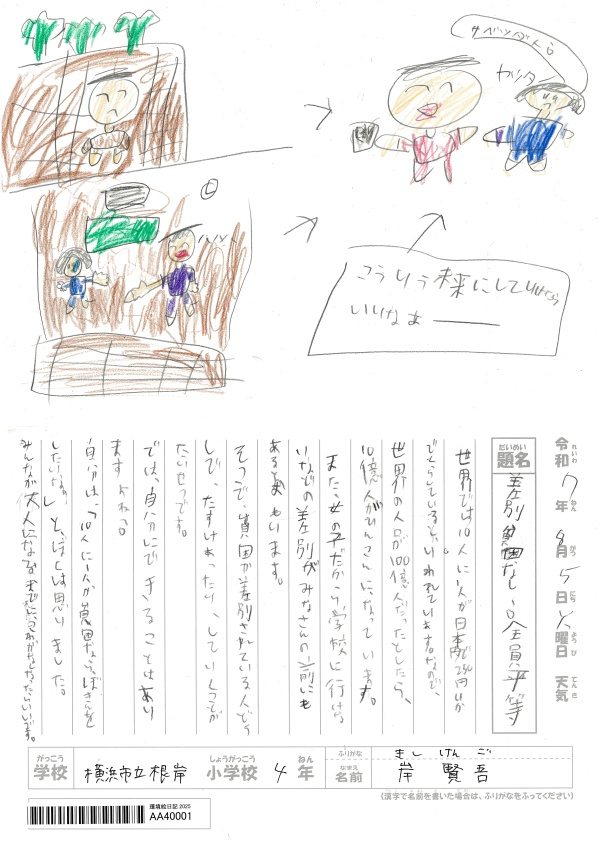 サベツダメ
ガッター
こういう未来にしていけたら
いいなぁー
れいわ ねん がつ にち ようび てんき
令和7年8月5日火曜日 天気
だいめい
題名
差別貧困なし。全員平等
世界では10人に1人が日本円で240円以下
でくらしているといわれています。なので、
世界の人口が100億人だったとしたら、
10億人がひんこんになっています。
また、女の子だから学校に行けな
いなどの差別がみなさんの前にも
あると思います。
そこで、貧困か差別されている人どう
しで、たすけあったり、していくことが
たいせつです。
では、自分にできることはあり
ますよね。
自分は、「10人に1人が貧困なら、ぼきんを
したいな。」と、ぼくは思いました。
みんなが大人になるまでに
がっこう
学校
横浜市立根岸
しょうがっこう
小学校
4
ねん
年
ふりがな
きし けんご
なまえ
名前
岸 賢吾
(漢字で名前を書いた場合は、ふりがなをふってください)
環境絵日記 2025
AA40001